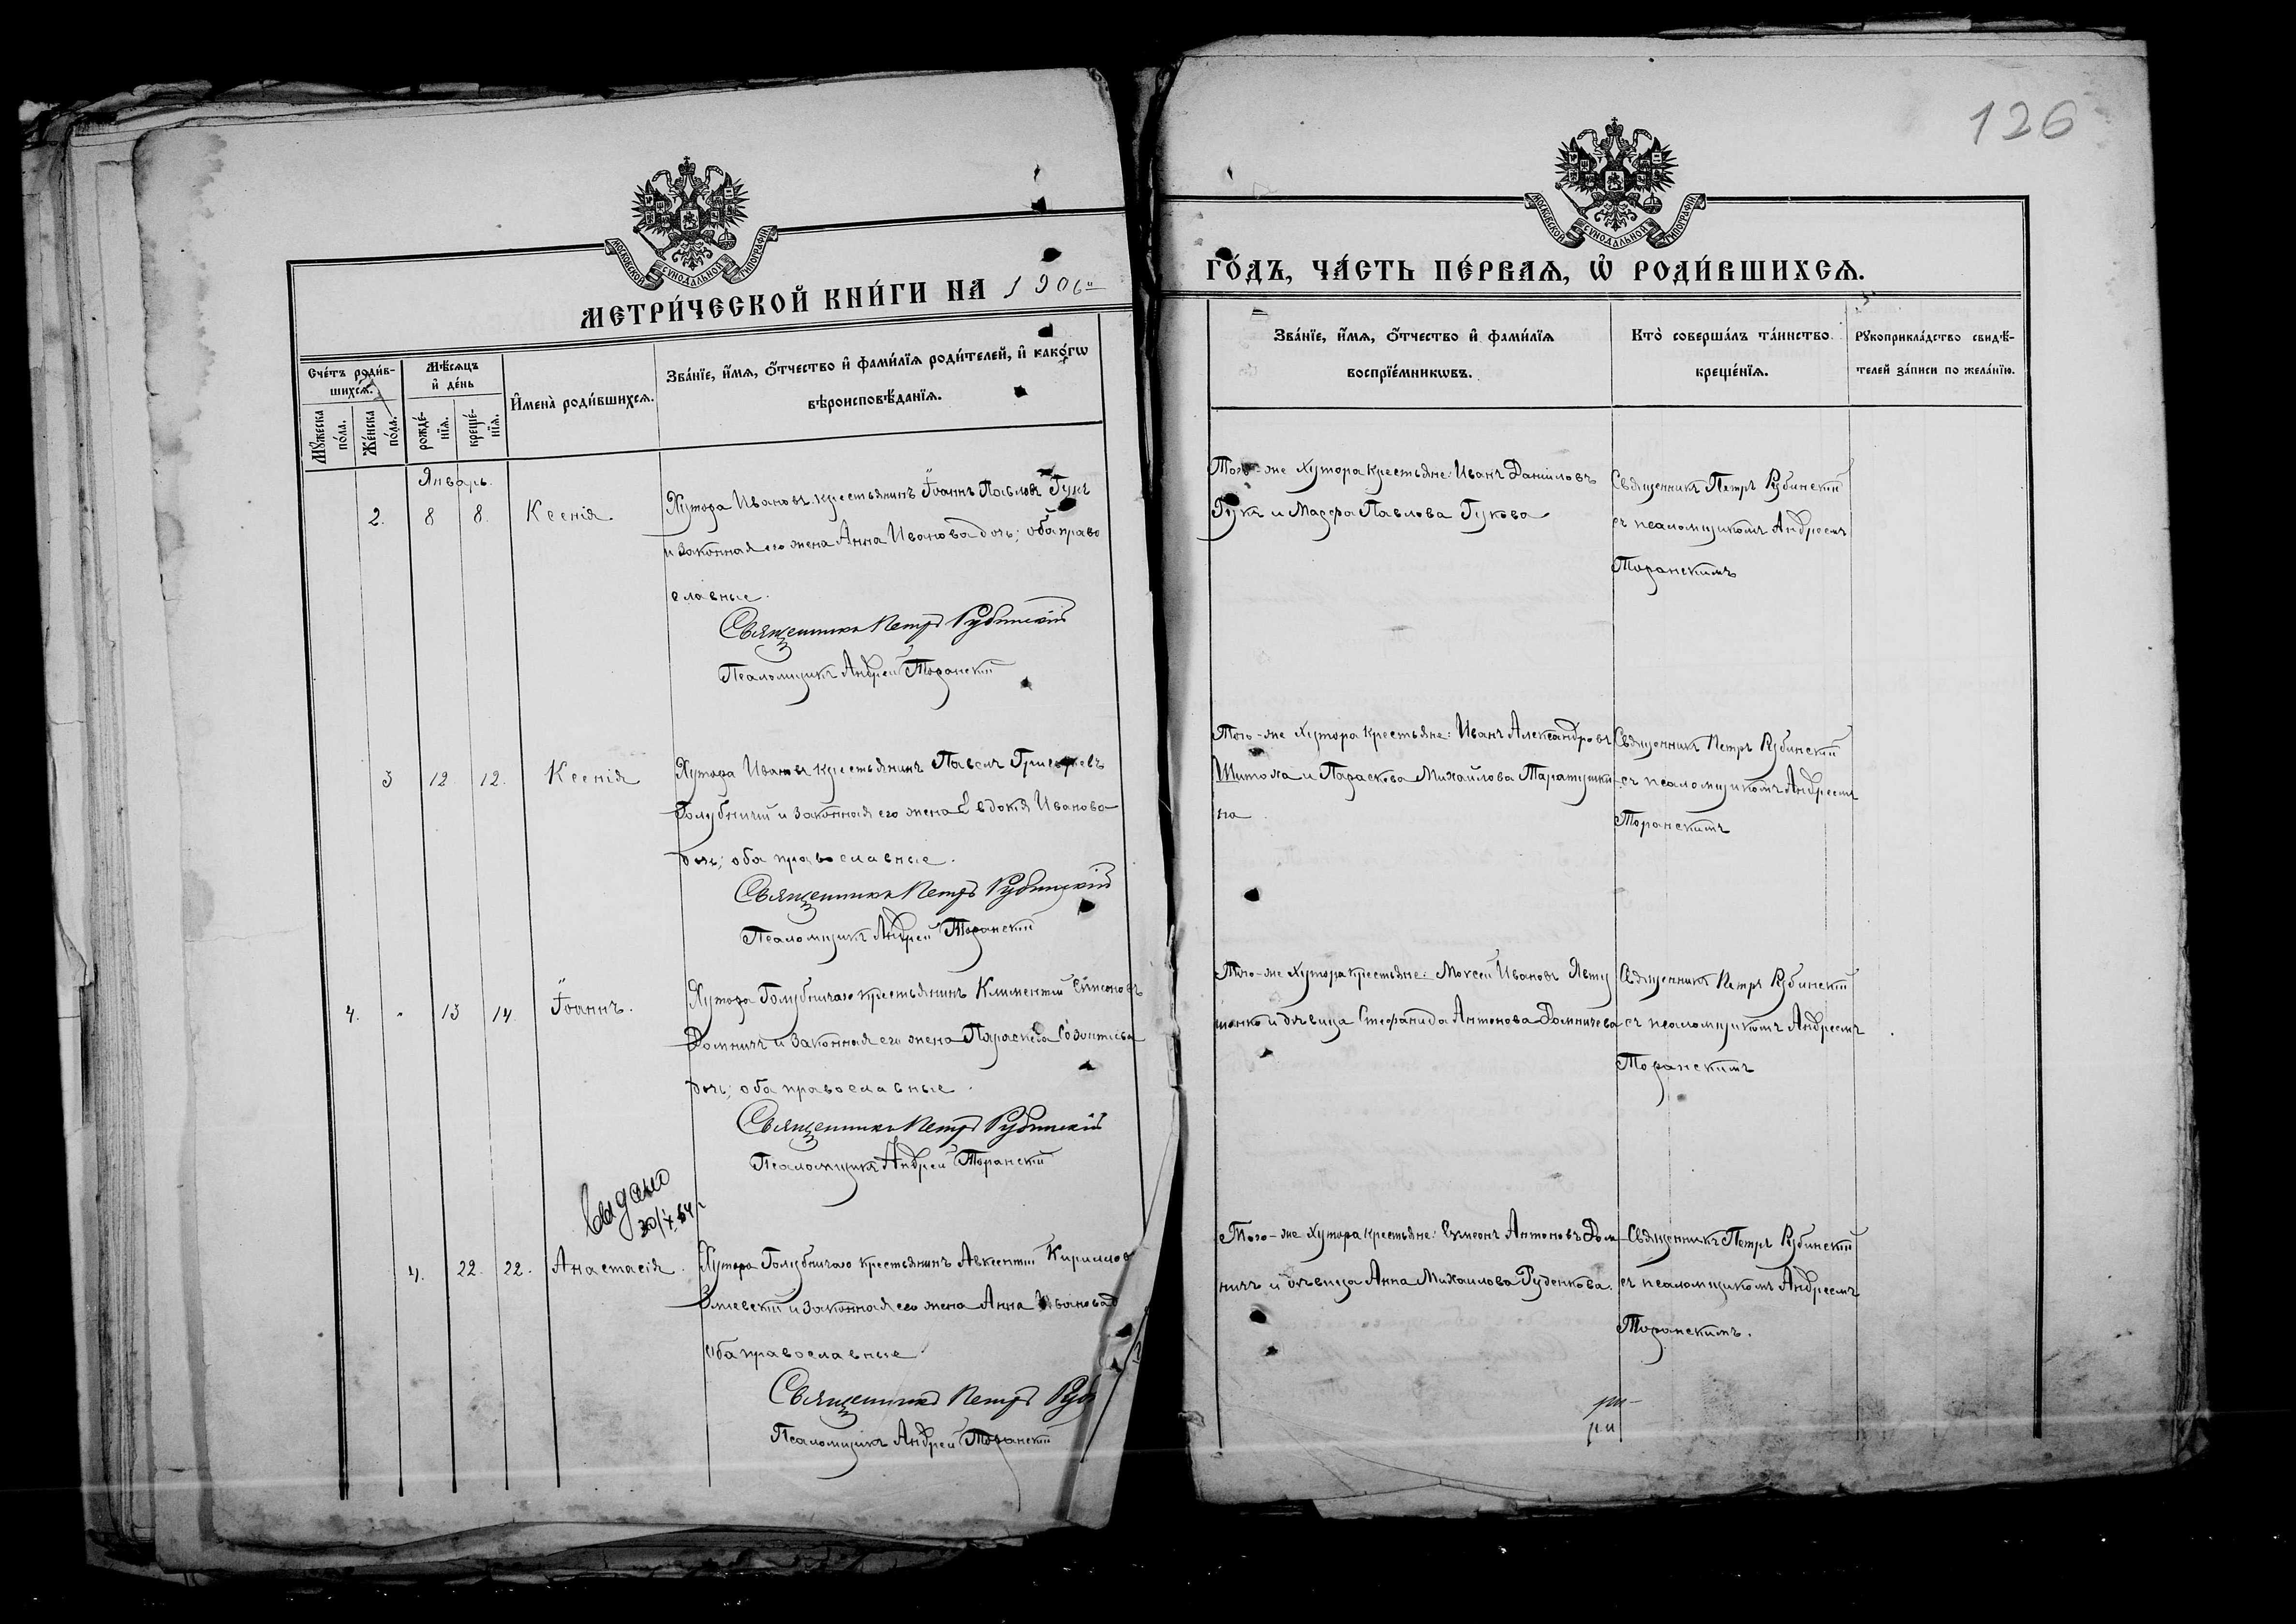 126
МОСКОВСКОЙ СѴНОДАЛЬНОЙ ТИПОГРАФІИ
МОСКОВСКОЙ СѴНОДАЛЬНОЙ ТИПОГРАФІИ
МЕТРИ́ЧЕСКОЙ КНИ́ГИ НА 1906й
ГО́ДЪ, ЧА́СТЬ ПЕ́РВАѦ, Ѡ҆ РОДИ́ВШИХСѦ.
Сче́тъ роди́в-
шихсѧ.
Мѹ́жеска по́ла.
Же́нска по́ла.
Мѣ́сѧцъ
и҆ де́нь
рожде́-
нїѧ.
креще́-
нїѧ.
И҆мена̀ роди́вшихсѧ.
Зва́нїе, и҆́мѧ, ѻ҆́тчество и҆ фами́лїѧ роди́телей, и҆ како́гѡ
вѣроисповѣ́данїѧ.
Зва́нїе, и҆́мѧ, ѻ҆́тчество и҆ фами́лїѧ
воспрїе́мникѡвъ.
Кто̀ соверша́лъ та́инство
креще́нїѧ.
Рѹкоприкла́дство свидѣ́-
телей за́писи по жела́нїю.
Январь.
2. 8 8. Ксенія.
Хутора Ивановъ крестьянинъ Іоаннъ Павловъ Гукъ
и законная его жена Анна Иванова дочь; оба право
славные.
Священникъ Петръ Рубинскій
Псаломщикъ Андрей Торанскій
Того-же хутора крестьяне: Иванъ Даниловъ
Гукъ и Марфа Павлова Гукова
Священникъ Петръ Рубинскій
съ псаломщикомъ Андреемъ
Торанскимъ
3 12 12. Ксенія
Хутора Ивановъ крестьянинъ Павелъ Григорьевъ
Голубничій и законная его жена Евдокія Иванова
дочь; оба православные.
Священникъ Петръ Рубинскій
Псаломщикъ Андрей Торанскій
Того-же хутора крестьяне: Иванъ Александровъ
Шитоха и Параскева Михайлова
на
Священникъ Петръ Рубинскій
съ псаломщикомъ Андреемъ
Торанскимъ
4. " 13 14. Іоаннъ.
Хутора Голубничаго крестьянинъ Климентій Сѵмеоновъ
Домничъ и законная его жена Параскева
дочь; оба православные.
Священникъ Петръ Рубинскій
Псаломщикъ Андрей Торанскій
Того-же хутора крестьяне: Моксей Ивановъ Явту
шенко и дѣвица Стефанида Антонова Домничева
Священникъ Петръ Рубинскій
съ псаломщикомъ Андреемъ
Торанскимъ
Видано
4. 22. 22. Анастасія.
Хутора Голубничаго крестьянинъ Авксентій Кириллов
Змиевскій и законная его жена Анна Иванова д
оба православные
Священникъ Петръ Руб
Псаломщикъ Андрей Торанскій
Того-же хутора крестьяне: Сѵмеонъ Антоновъ Дом
ничъ и дѣвица Анна Михайлова Руденкова.
Священникъ Петръ Рубинскій
съ псаломщикомъ Андреемъ
Торанскимъ.